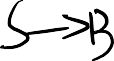 S→B